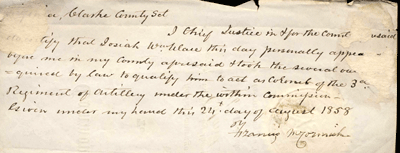 a, Clarke County Sct
I Chief Justice in & for the Count
tify that Josiah Wm this day personally appe
me in my County aforesaid & took the several oa
quired by law to qualify him to act as Colonel of the 3d
Regiment of Artillery under the within Commission
Given under my hand this 24th day of August 1858